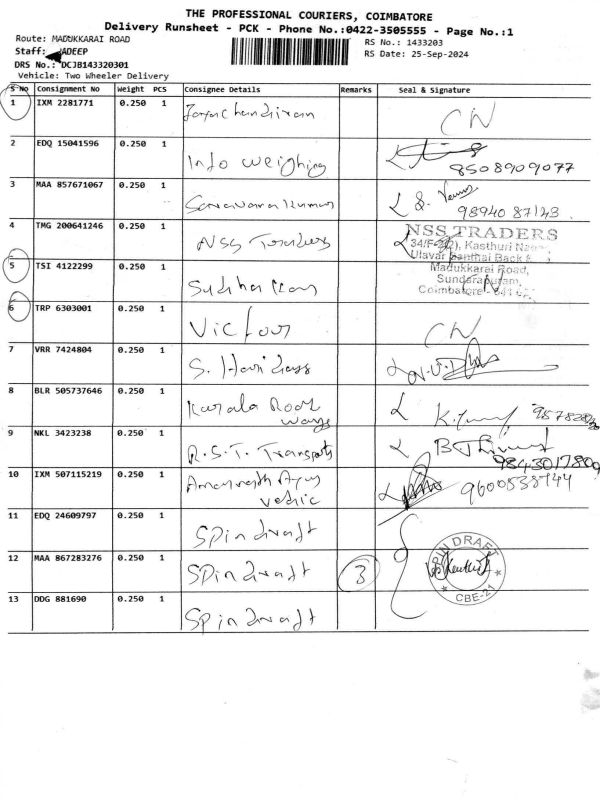 THE PROFESSIONAL COURIERS, COIMBATORE
Delivery Runsheet - PCK - Phone No.:0422-3505555 - Page No.:1
Route: MADUKKARAI ROAD
RS No.: 1433203
Staff: JADEEP
RS Date: 25-Sep-2024
DRS No.: DCJB143320301
Vehicle: Two Wheeler Delivery
S No Consignment No Weight PCS Consignee Details Remarks Seal & Signature
1 IXM 2281771 0.250 1 CN
2 EDQ 15041596 0.250 1 Info Weighing 8508909077
3 MAA 857671067 0.250 1 Saravanakumar 98940 87143
4 TMG 200641246 0.250 1 NSS Traders
NSS TRADERS
Kasthuri
Madukkarai Road,
Sundarapuram,
Coimbatore
5 TSI 4122299 0.250 1
6 TRP 6303001 0.250 1 Victour CN
7 VRR 7424804 0.250 1 S. Haridass
8 BLR 505737646 0.250 1 Karala Road ways
9 NKL 3423238 0.250 1 R.S.T. Transports 9843017809
10 IXM 507115219 0.250 1 Amarnath Ayur vedic 9600538744
11 EDQ 24609797 0.250 1 Spindraft
12 MAA 867283276 0.250 1 Spindraft 3
SPIN DRAFT
CBE-21
13 DDG 881690 0.250 1 Spindraft